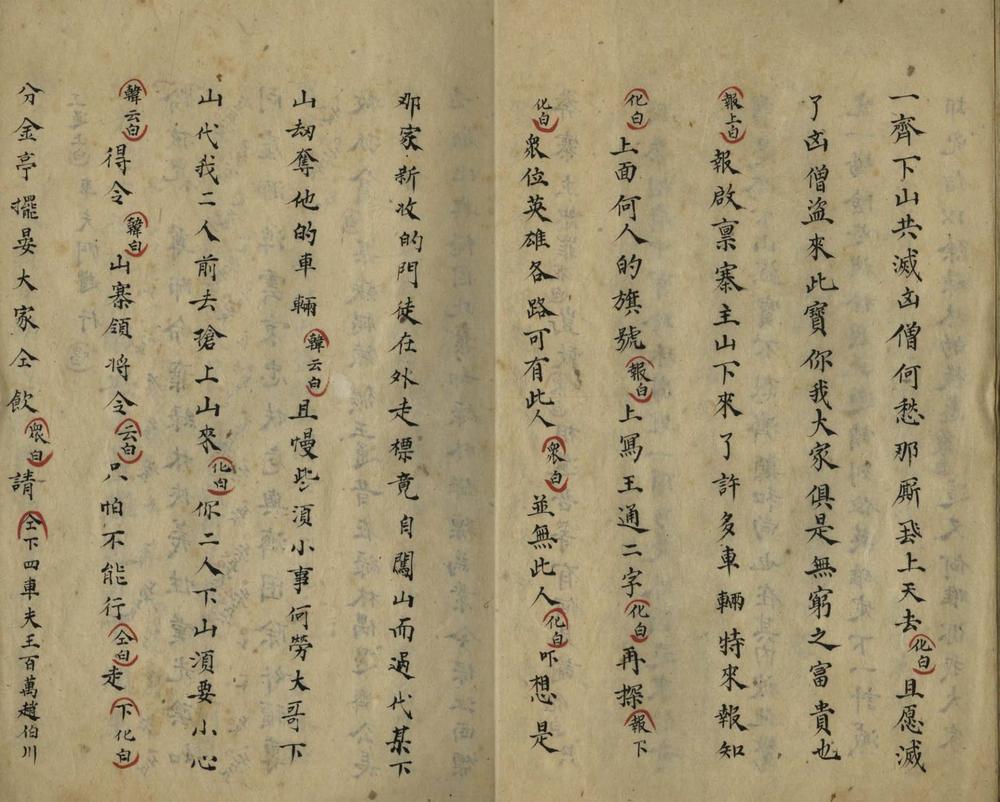 一齊下山共滅凶僧何愁那厮飛上天去化白且愿滅
了凶僧盜來此寶你我大家俱是無窮之富貴也
報上白報啟禀寨主山下來了許多車輛特來報知
化白上面何人的旗號報白上寫王通二字化白再探報下
化白衆位英雄各路可有此人衆白並無此人化白吓想是
那家新收的門徒在外走摽竟自闖山而過代某下
山刼奪他的車輛韓云白且慢些須小事何勞大哥下
山代我二人前去搶上山來化白你二人下山須要小心
韓云白得令韓白山寨領将令云白只怕不能行仝白走下化白
分金亭擺晏大家仝飲衆白請仝下四車夫王百萬趙伯川